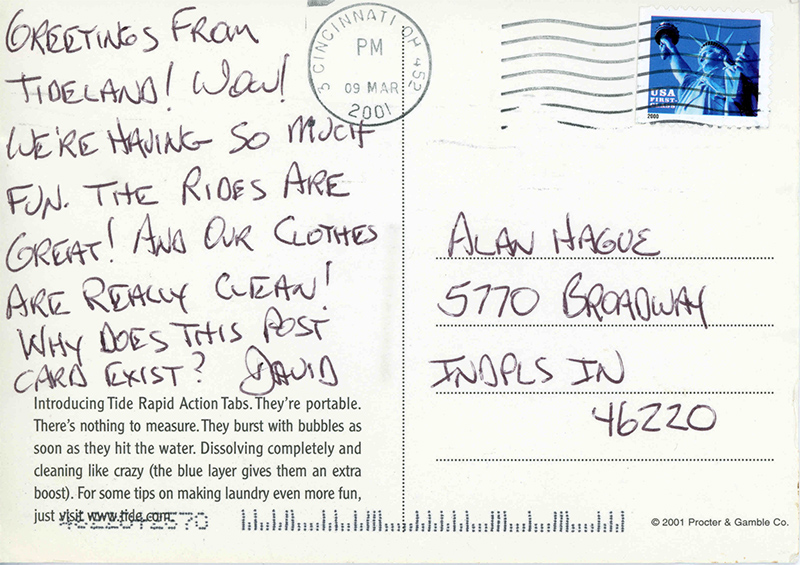 GREETINGS FROM
TIDELAND! WOW!
WE'RE HAVING SO MUCH
FUN. THE RIDES ARE
GREAT! AND OUR CLOTHES
ARE REALLY CLEAN!
WHY DOES THIS POST
CARD EXIST? DAVID
Introducing Tide Rapid Action Tabs. They're portable.
There's nothing to measure. They burst with bubbles as
soon as they hit the water. Dissolving completely and
cleaning like crazy (the blue layer gives them an extra
boost). For some tips on making laundry even more fun,
just visit www.tide.com.
CINCINNATI OH 452
PM
09 MAR
2001
USA
FIRST-CLASS
2000
ALAN HAGUE
5770 BROADWAY
INDPLS IN
46220
© 2001 Procter & Gamble Co.